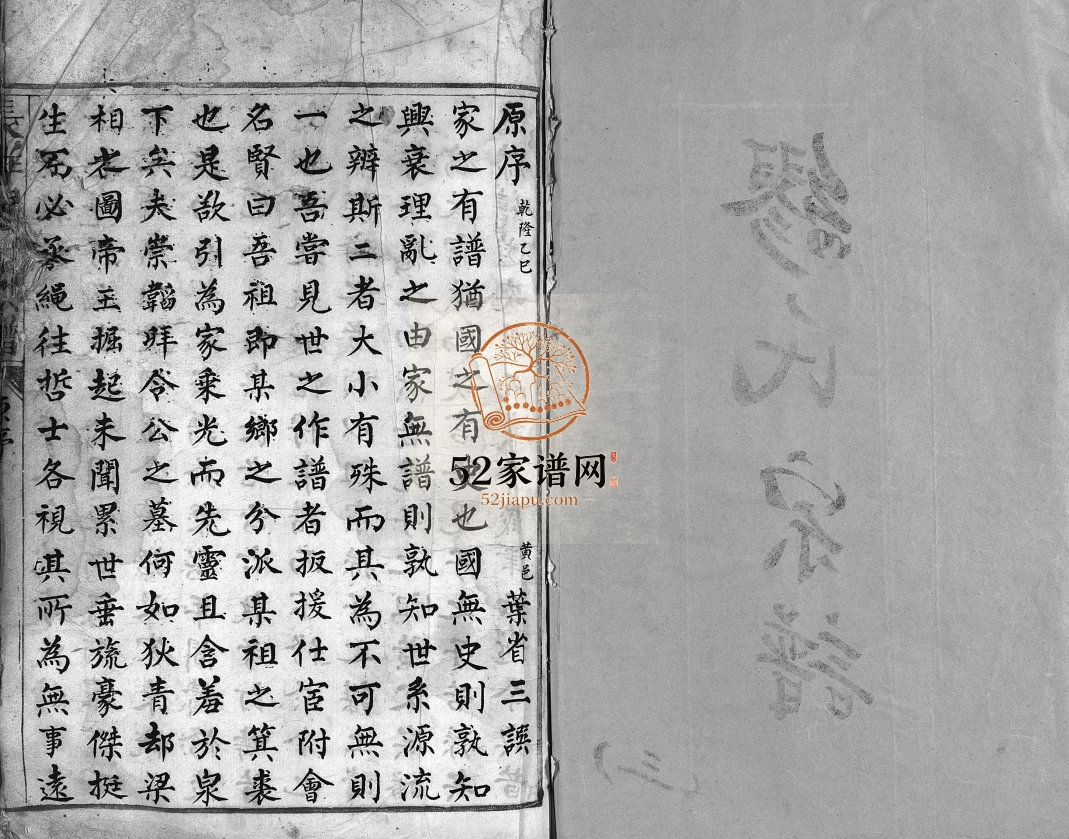 原序 乾隆乙巳 黄邑 葉省三譔
家之有譜猶國之有史也國無史則孰知
興衰理亂之由家無譜則孰知世系源流
之辨斯二者大小有殊而其為不可無則
一也吾嘗見世之作譜者扳援仕宦附會
名賢曰吾祖即某鄉之分派某祖之箕裘
也是欲引為家乘光而先靈且含羞於泉
下矣夫崇韜拜令公之墓何如狄青却梁
相之圖帝王掘起未聞累世垂旒豪傑挺
生不必丞繩往哲士各視其所為無事遠
52家谱网
52jiapu.com
繆氏宗譜
(三)